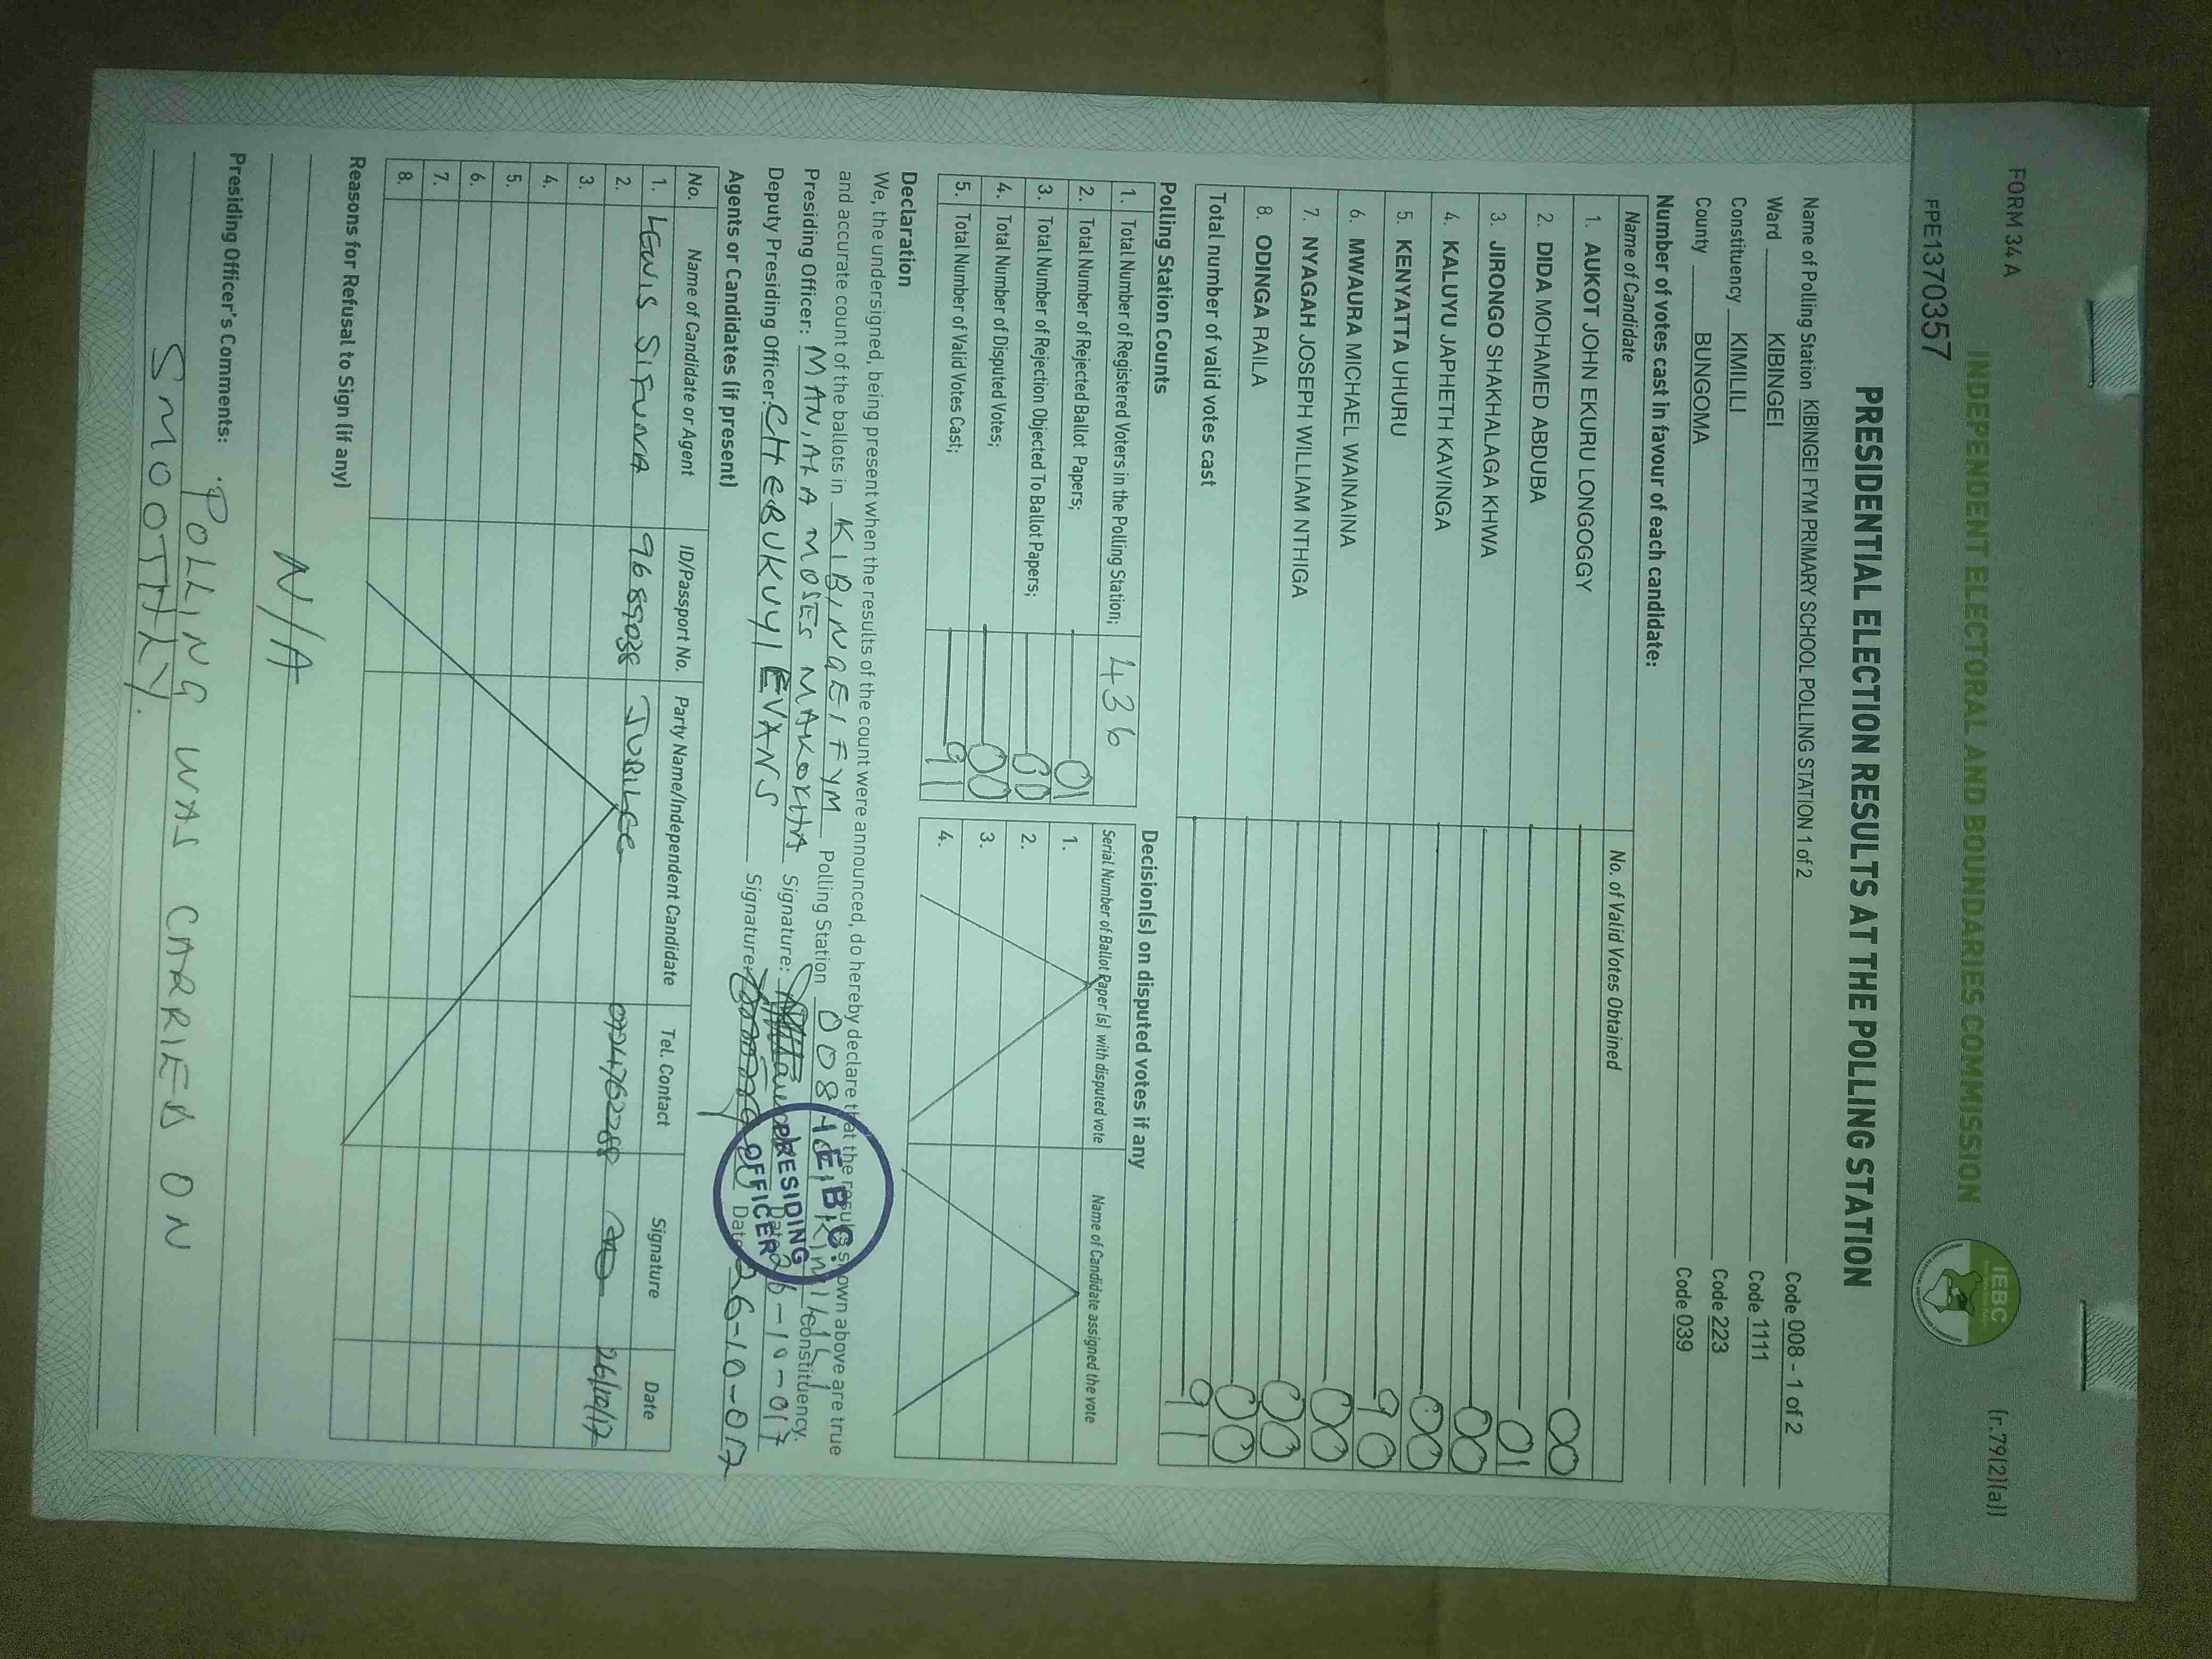 FORM 34A
(r.79(2)(a))
INDEPENDENT ELECTORAL AND BOUNDARIES COMMISSION
IEBC
FPE1370357
PRESIDENTIAL ELECTION RESULTS AT THE POLLING STATION
Name of Polling Station KIBINGEI FYM PRIMARY SCHOOL POLLING STATION 1 of 2 Code 008 - 1 of 2
Ward KIBINGEI Code 1111
Constituency KIMILILI Code 223
County BUNGOMA Code 039
Number of votes cast in favour of each candidate:
Name of Candidate No. of Valid Votes Obtained
1. AUKOT JOHN EKURU LONGOGGY 00
2. DIDA MOHAMED ABDUBA 01
3. JIRONGO SHAKHALAGA KHWA 00
4. KALUYU JAPHETH KAVINGA 00
5. KENYATTA UHURU 90
6. MWAURA MICHAEL WAINAINA 00
7. NYAGAH JOSEPH WILLIAM NTHIGA 00
8. ODINGA RAILA 00
Total number of valid votes cast 91
Polling Station Counts
1. Total Number of Registered Voters in the Polling Station; 436
2. Total Number of Rejected Ballot Papers; 01
3. Total Number of Rejection Objected To Ballot Papers; 00
4. Total Number of Disputed Votes; 00
5. Total Number of Valid Votes Cast; 91
Decision(s) on disputed votes if any
Serial Number of Ballot Paper (s) with disputed vote Name of Candidate assigned the vote
1.
2.
3.
4.
Declaration
We, the undersigned, being present when the results of the count were announced, do hereby declare that the results shown above are true
and accurate count of the ballots in KIBINGEI FYM Polling Station 008 KIMILILI Constituency.
Presiding Officer: MANIALA MOSES MAKOKHA Signature: Date 26-10-017
Deputy Presiding Officer: CHEBUKUYI EVANS Signature: Date 26-10-017
I.E.B.C.
PRESIDING
OFFICER
Agents or Candidates (if present)
No. Name of Candidate or Agent ID/Passport No. Party Name/Independent Candidate Tel. Contact Signature Date
1. LEWIS SIFUNA 9689038 JUBILEE 0724762288 26/10/17
2.
3.
4.
5.
6.
7.
8.
Reasons for Refusal to Sign (if any)
N/A
Presiding Officer's Comments: POLLING WAS CARRIED ON
SMOOTHLY.